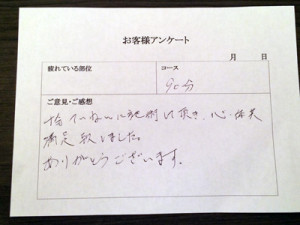 お客様アンケート
月 日
疲れている部位
コース
90分
ご意見・ご感想
ていねいに施術頂き、心・体共
満足致しました。
ありがとうございます。